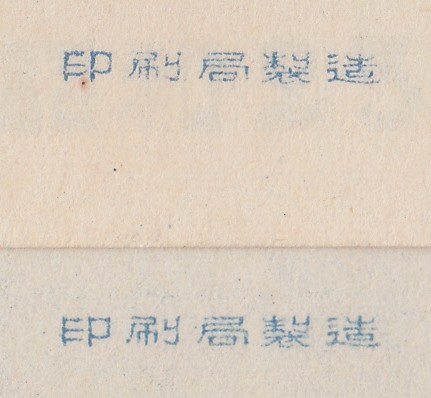 印刷局製造
印刷局製造